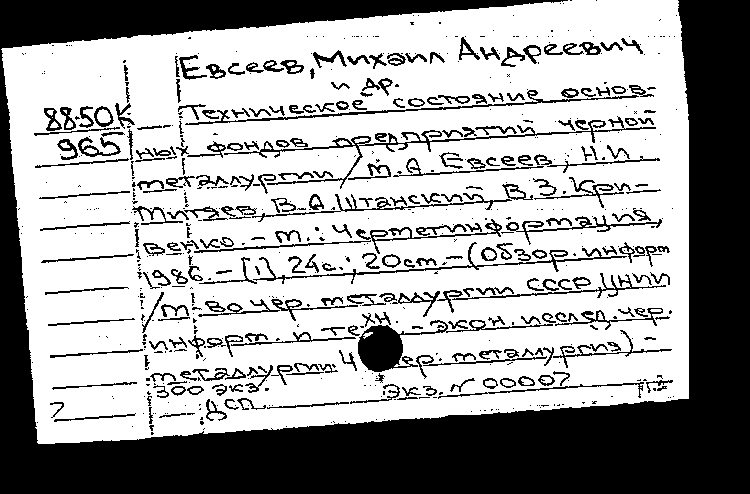 Евсеев, Михаил Андреевич
и др.
88-50К Техническое состояние основ-
965 ных фондов предприятий черной
металлургии / М.А. Евсеев, Н.И.
Митяев, В.А. Штанский, В.З. Кри-
венко. - М.: Черметинформация,
1986. - [1], 24с.; 20см. - (Обзор. информ
/М-во чер. металлургии СССР, ЦНИИ
информ. и техн. - экон. исслед. чер.
металлургии. Ч чер. металлургия). -
300 экз. Экз. N 00007
ДСП